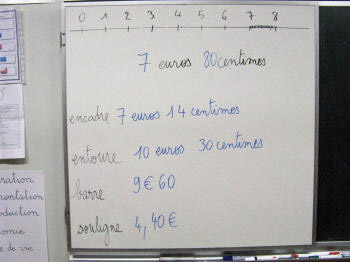 0 1 2 3 4 5 6 7 8
7 euros 80 centimes
encadre 7 euros 14 centimes
entoure 10 euros 30 centimes
barre 9€60
souligne 4,40€
ration
mentation
oduction
omie
e de vie